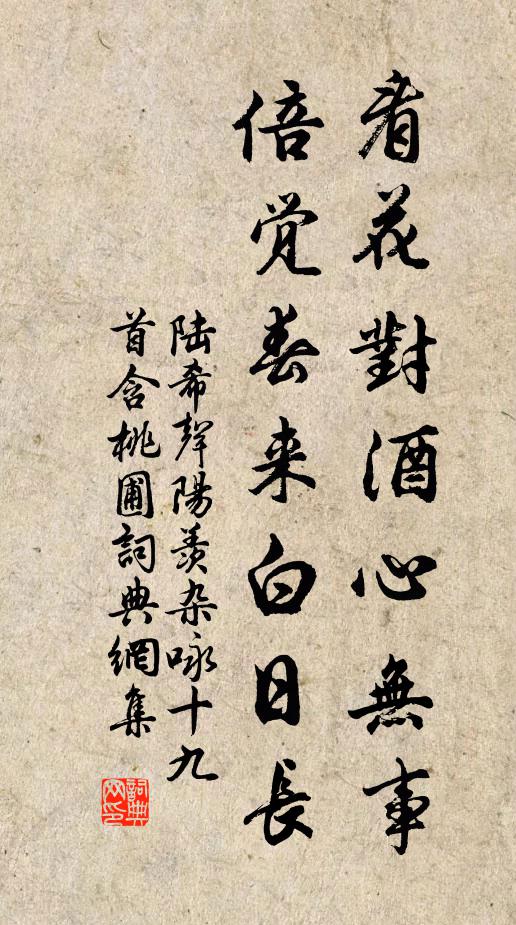 看花對酒心無事
倍覺春来白日長
陆希聲陽羨杂咏十九
首含桃圃詞典網集
詞典网印